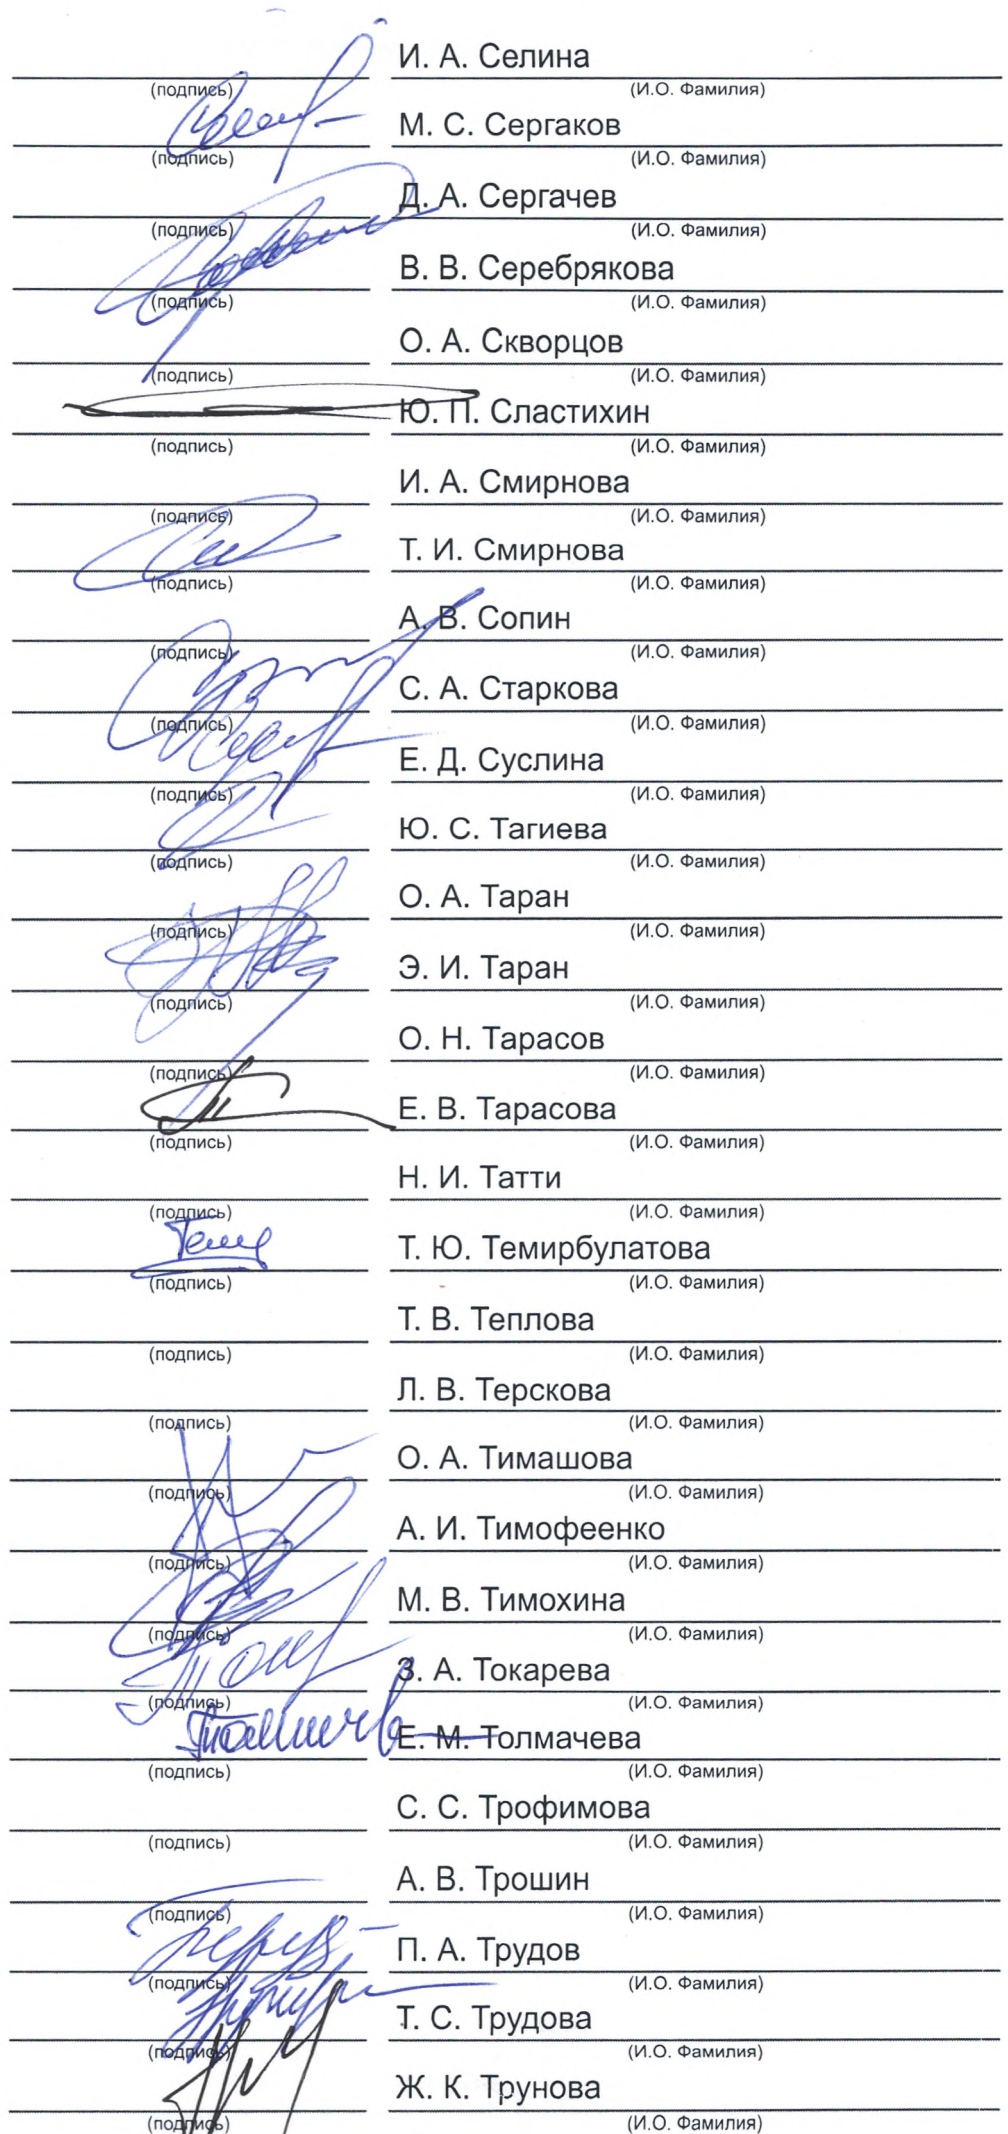 И. А. Селина
(подпись) (И.О. Фамилия)
М. С. Сергаков
(подпись) (И.О. Фамилия)
Д. А. Сергачев
(подпись) (И.О. Фамилия)
В. В. Серебрякова
(подпись) (И.О. Фамилия)
О. А. Скворцов
(подпись) (И.О. Фамилия)
Ю. П. Сластихин
(подпись) (И.О. Фамилия)
И. А. Смирнова
(подпись) (И.О. Фамилия)
Т. И. Смирнова
(подпись) (И.О. Фамилия)
А. В. Сопин
(подпись) (И.О. Фамилия)
С. А. Старкова
(подпись) (И.О. Фамилия)
Е. Д. Суслина
(подпись) (И.О. Фамилия)
Ю. С. Тагиева
(подпись) (И.О. Фамилия)
О. А. Таран
(подпись) (И.О. Фамилия)
Э. И. Таран
(подпись) (И.О. Фамилия)
О. Н. Тарасов
(подпись) (И.О. Фамилия)
Е. В. Тарасова
(подпись) (И.О. Фамилия)
Н. И. Татти
(подпись) (И.О. Фамилия)
Т. Ю. Темирбулатова
(подпись) (И.О. Фамилия)
Т. В. Теплова
(подпись) (И.О. Фамилия)
Л. В. Терскова
(подпись) (И.О. Фамилия)
О. А. Тимашова
(подпись) (И.О. Фамилия)
А. И. Тимофеенко
(подпись) (И.О. Фамилия)
М. В. Тимохина
(подпись) (И.О. Фамилия)
З. А. Токарева
(подпись) (И.О. Фамилия)
Е. М. Толмачева
(подпись) (И.О. Фамилия)
С. С. Трофимова
(подпись) (И.О. Фамилия)
А. В. Трошин
(подпись) (И.О. Фамилия)
П. А. Трудов
(подпись) (И.О. Фамилия)
Т. С. Трудова
(подпись) (И.О. Фамилия)
Ж. К. Трунова
(подпись) (И.О. Фамилия)